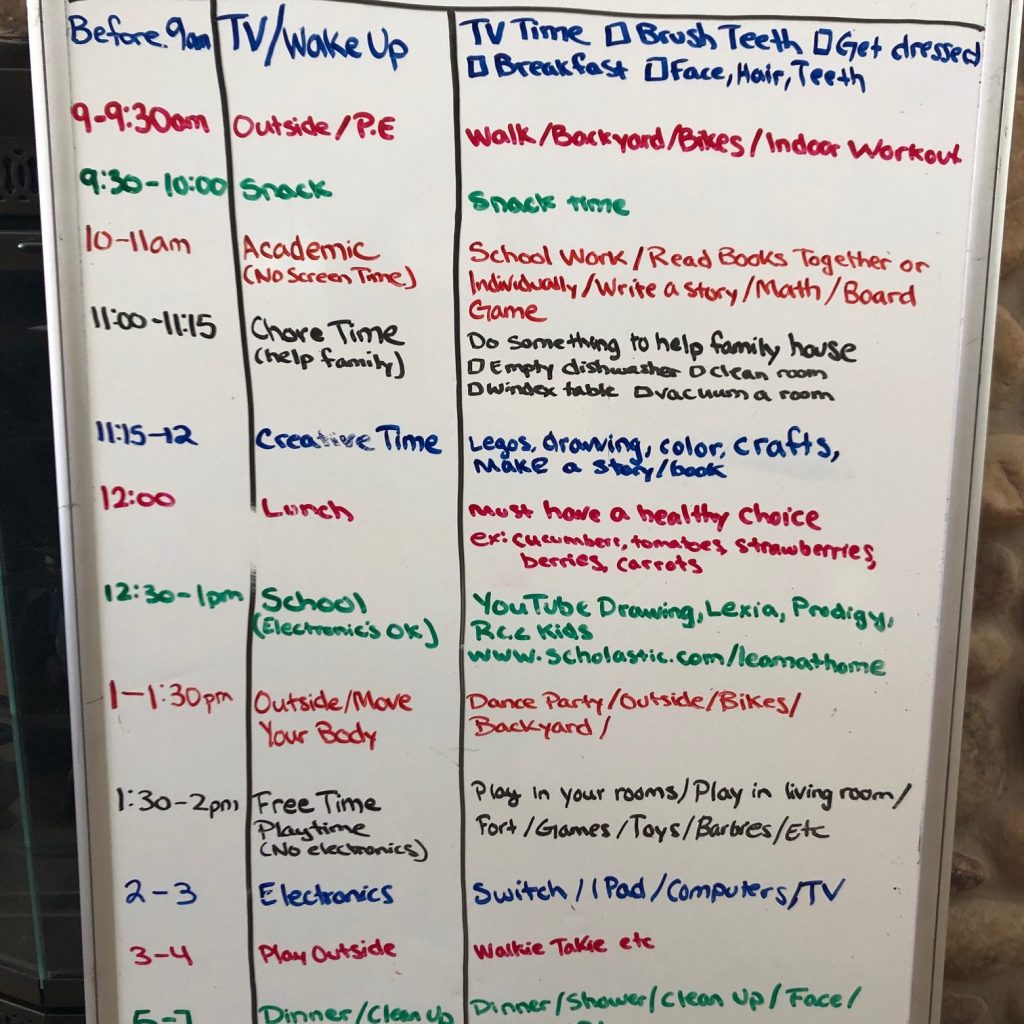 Before 9am TV/Wake Up TV Time ☐ Brush Teeth ☐ Get dressed
☐ Breakfast ☐ Face, Hair, Teeth
9-9:30am Outside/P.E Walk/Backyard/Bikes/Indoor Workout
9:30-10:00 Snack Snack time
10-11am Academic School Work/Read Books Together or
(No Screen Time) Individually/Write a story/Math/Board
Game
11:00-11:15 Chore Time Do something to help family house
(help family) ☐ Empty dishwasher ☐ clean room
☐ Windex table ☐ vacuum a room
11:15-12 Creative Time Legos, drawing, color, crafts,
Make a story/book
12:00 Lunch Must have a healthy choice
ex: cucumbers, tomatoes, strawberries,
berries, carrots
12:30-1pm School YouTube Drawing, Lexia, Prodigy,
(Electronic's OK) Kids
www.scholastic.com/learnathome
1-1:30pm Outside/Move Dance Party/Outside/Bikes/
Your Body Backyard/
1:30-2pm Free Time Play in your rooms/Play in living room/
Playtime Fort/Games/Toys/Barbies/Etc
(No electronics)
2-3 Electronics Switch/IPad/Computers/TV
3-4 Play Outside Walkie Takie etc
5-7 Dinner/Clean Up Dinner/Shower/Clean Up/Face/